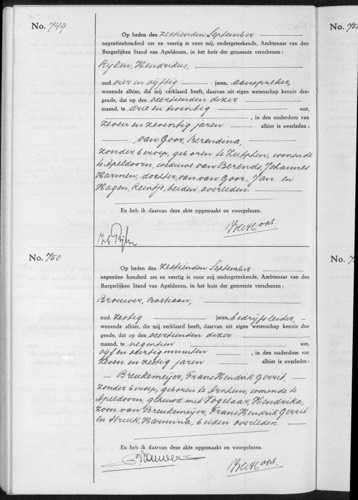 No. 749
Op heden den zestienden September
negentienhonderd zes en veertig is voor mij, ondergeteekende, Ambtenaar van den
Burgerlijken Stand van Apeldoorn, in het huis der gemeente verschenen:
Rijken, Hendrikus,
oud vier en vijftig jaren, aanspreker,
wonende alhier, die mij verklaard heeft, daarvan uit eigen wetenschap kennis dra-
gende, dat op den veertienden dezer
maand, te drie en twintig uur,
, in den ouderdom van
zeven en zeventig jaren alhier is overleden:
van Goor, Berendina,
zonder beroep, geboren te Zutphen, wonende
te Apeldoorn, weduwe van Berends, Johannes
Harmen, dochter van van Goor, Jan en
Hagen, Reintje, beiden overleden
En heb ik daarvan deze akte opgemaakt en voorgelezen.
No. 750
Op heden den zestienden September
negentienhonderd zes en veertig is voor mij, ondergeteekende, Ambtenaar van den
Burgerlijken Stand van Apeldoorn, in het huis der gemeente verschenen:
Brouwer, Bastiaan,
oud zestig jaren, bedrijfsleider,
wonende alhier, die mij verklaard heeft, daarvan uit eigen wetenschap kennis dra-
gende, dat op den veertienden dezer
maand, te negentien uur
vijf en veertig minuten, in den ouderdom van
zeven en zestig jaren alhier is overleden:
Breukemeijer, Frans Hendrik Gerrit
zonder beroep, geboren te Arnhem, wonende te
Apeldoorn, gehuwd met Vogelaar, Hendrika,
zoon van Breukemeijer, Frans Hendrik Gerrit
en Struik, Harmina, beiden overleden
En heb ik daarvan deze akte opgemaakt en voorgelezen.
Brouwer